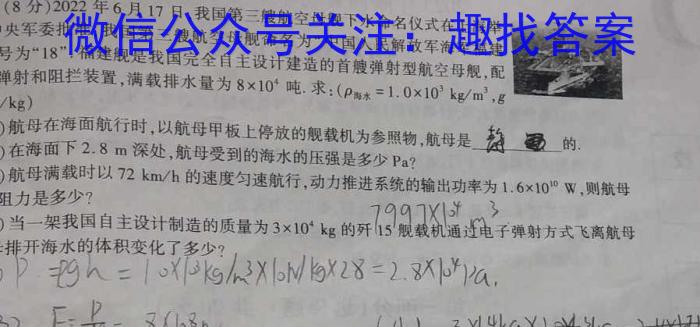 (8分)2022年6月17日,我国第三艘航空母舰下水命名仪式在
微信公众号关注：趣找答案
号为“18”.福建舰是我国完全自主设计建造的首艘弹射型航空母舰,配
弹射和阻拦装置,满载排水量为8×10⁴ 吨.求:(ρ海水=1.0×10³ kg/m³,g
/kg)
)航母在海面航行时,以航母甲板上停放的舰载机为参照物,航母是 静 的.
)在海面下2.8 m深处,航母受到的海水的压强是多少Pa?
)航母满载时以72 km/h的速度匀速航行,动力推进系统的输出功率为1.6×10¹⁰ W,则航母
阻力是多少?
7997×10⁴ m³
)当一架我国自主设计制造的质量为3×10⁴ kg的歼15舰载机通过电子弹射方式飞离航母
排开海水的体积变化了多少?
P =ρgh = 1.0×10³kg/m³×10N/kg×28=2.8×10⁴Pa.